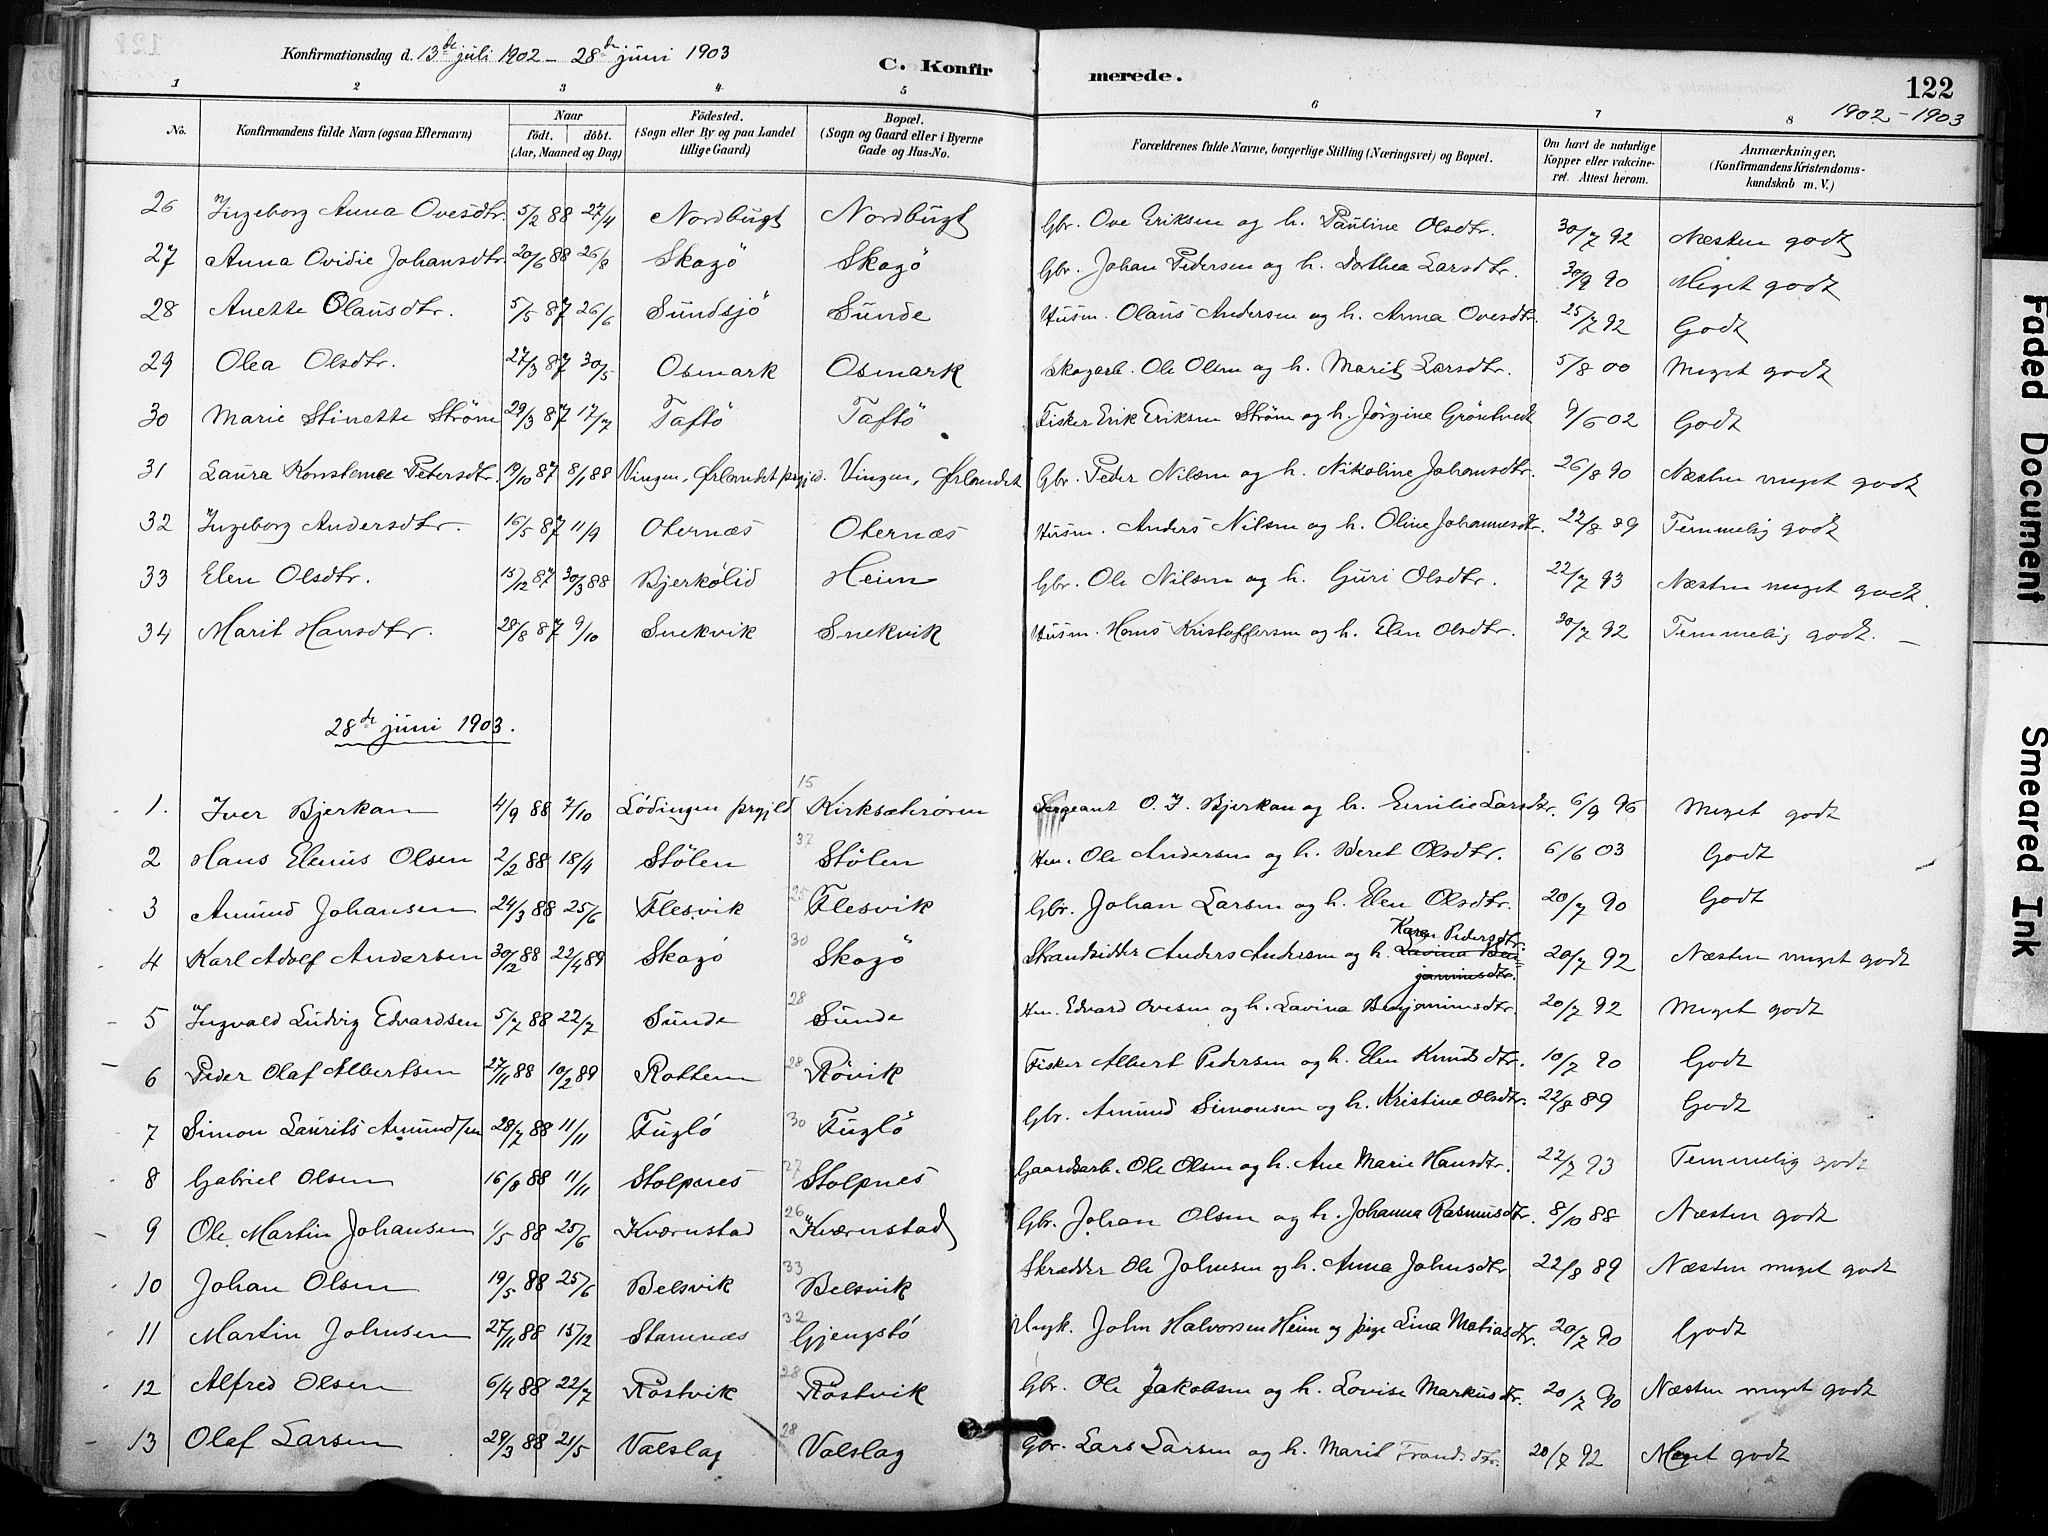 Konfirmationsdag d. 13de juli 1902 – 28de juni 1903 C. Konfirmerede. 122
1902–1903
1 2 3 4 5 6 7 8
No. Konfirmandens fulde Navn (ogsaa Efternavn) Naar født. døbt. (Aar, Maaned og Dag) Fødested. (Sogn eller By og paa Landet tillige Gaard) Bopæl. (Sogn og Gaard eller i Byerne Gade og Hus-No. Forældrenes fulde Navne, borgerlige Stilling (Næringsvei) og Bopæl. Om havt de naturlige Kopper eller vakcineret. Attest herom. Anmærkninger. (Konfirmandens Kristendomskundskab m. V.)
26 Ingeborg Anna Ovesdtr. 5/2 88 27/4 Nordbugt Nordbugt Gbr. Ove Eriksen og h. Pauline Olsdtr. 30/7 92 Næsten godt
27 Anna Ovidie Johansdtr. 20/6 88 26/8 Skogö Skogö Gbr. Johan Pedersen og h. Dorthea Larsdtr. 30/9 90 Meget godt
28 Anette Olausdtr. 5/5 87 26/6 Sundsjö Sunde Husm. Olaus Andersen og h. Anna Ovesdtr. 25/7 92 Godt
29 Olea Olsdtr. 27/3 87 30/5 Osmark Osmark Skogarb. Ole Olsen og h. Marit Larsdtr. 5/8 00 Meget godt
30 Marie Stinette Strøm 29/3 87 17/7 Taftö Taftö Fisker Erik Eriksen Strøm og h. Jörgine Gröntvedt 9/6 02 Godt
31 Laura Konstanse Petersdtr. 19/10 87 8/1 88 Vingen, Ørlandet prgjld. Vingen, Ørlandet Gbr. Peder Nilsen og h. Nikoline Johansdtr. 26/8 90 Næsten meget godt
32 Ingeborg Andersdtr. 16/5 87 11/9 Oternæs Oternæs Husm. Anders Nilsen og h. Oline Johannesdtr. 22/8 89 Temmelig godt
33 Elen Olsdtr. 15/12 87 30/3 88 Bjerkölid Heim Gbr. Ole Nilsen og h. Guri Olsdtr. 22/7 93 Næsten meget godt.
34 Marit Hansdtr. 28/8 87 9/10 Snekvik Snekvik Husm. Hans Kristoffersen og h. Elen Olsdtr. 30/7 92 Temmelig godt. –
28de juni 1903.
1. Iver Bjerkan 4/9 88 7/10 Lödingen prgjld 15 Kirksæhrören Sergeant O. I. Bjerkan og h. Emilie Larsdtr. 6/9 96 Meget godt
2 Hans Elenius Olsen 2/2 88 18/4 Stölen 37 Stölen Hm. Ole Andersen og h. Beret Olsdtr. 6/6 03 Godt
3 Amund Johansen 24/3 88 25/6 Flesvik 25 Flesvik Gbr. Johan Larsen og h. Elen Olsdtr. 20/7 90 Godt
4 Karl Adolf Andersen 30/12 88 22/4 89 Skogö 30 Skogö Strandsidder Anders Andersen og h. Karen Pedersdtr. Lavina Benjaminsdtr. 20/7 92 Næsten meget godt
5 Ingvald Ludvig Edvardsen 5/7 88 22/7 Sunde 28 Sunde Hm. Edvard Ovesen og h. Lavina Benjaminsdtr. 20/7 92 Meget godt
6 Peder Olaf Albertsen 27/11 88 10/2 89 Rottem 28 Rövik Fisker Albert Pedersen og h. Elen Knudsdtr. 10/7 90 Godt
7 Simon Laurits Amundsen 28/7 88 11/11 Fuglö 30 Fuglö Gbr. Amund Simonsen og h. Kristine Olsdtr. 22/8 89 Godt
8 Gabriel Olsen 16/8 88 11/11 Stolpnes 27 Stolpnes Gaardsarb. Ole Olsen og h. Ane Marie Hansdtr. 22/7 93 Temmelig godt
9 Ole Martin Johansen 1/5 88 25/6 Kværnstad 26 Kværnstad Gbr. Johan Olsen og h. Johanna Rasmusdtr. 8/10 88 Næsten godt
10 Johan Olsen 19/5 88 25/6 Belsvik 33 Belsvik Skrædder Ole Johnsen og h. Anna Johnsdtr 22/8 89 Næsten meget godt
11 Martin Johnsen 27/11 88 15/12 Stamnæs 32 Gjengstö Ungk. John Halvorsen Heim og pige Lina Matiasdtr. 20/7 90 Godt
12 Alfred Olsen 6/4 88 22/7 Röstvik 28 Röstvik Gbr. Ole Jakobsen og h. Lovise Markusdtr. 20/7 90 Næsten meget godt
13 Olaf Larsen 29/3 88 21/5 Valslag 28 Valslag Gbr. Lars Larsen og h. Marit Trondsdtr. 20/7 92 Meget godt
Faded Document
Smeared Ink